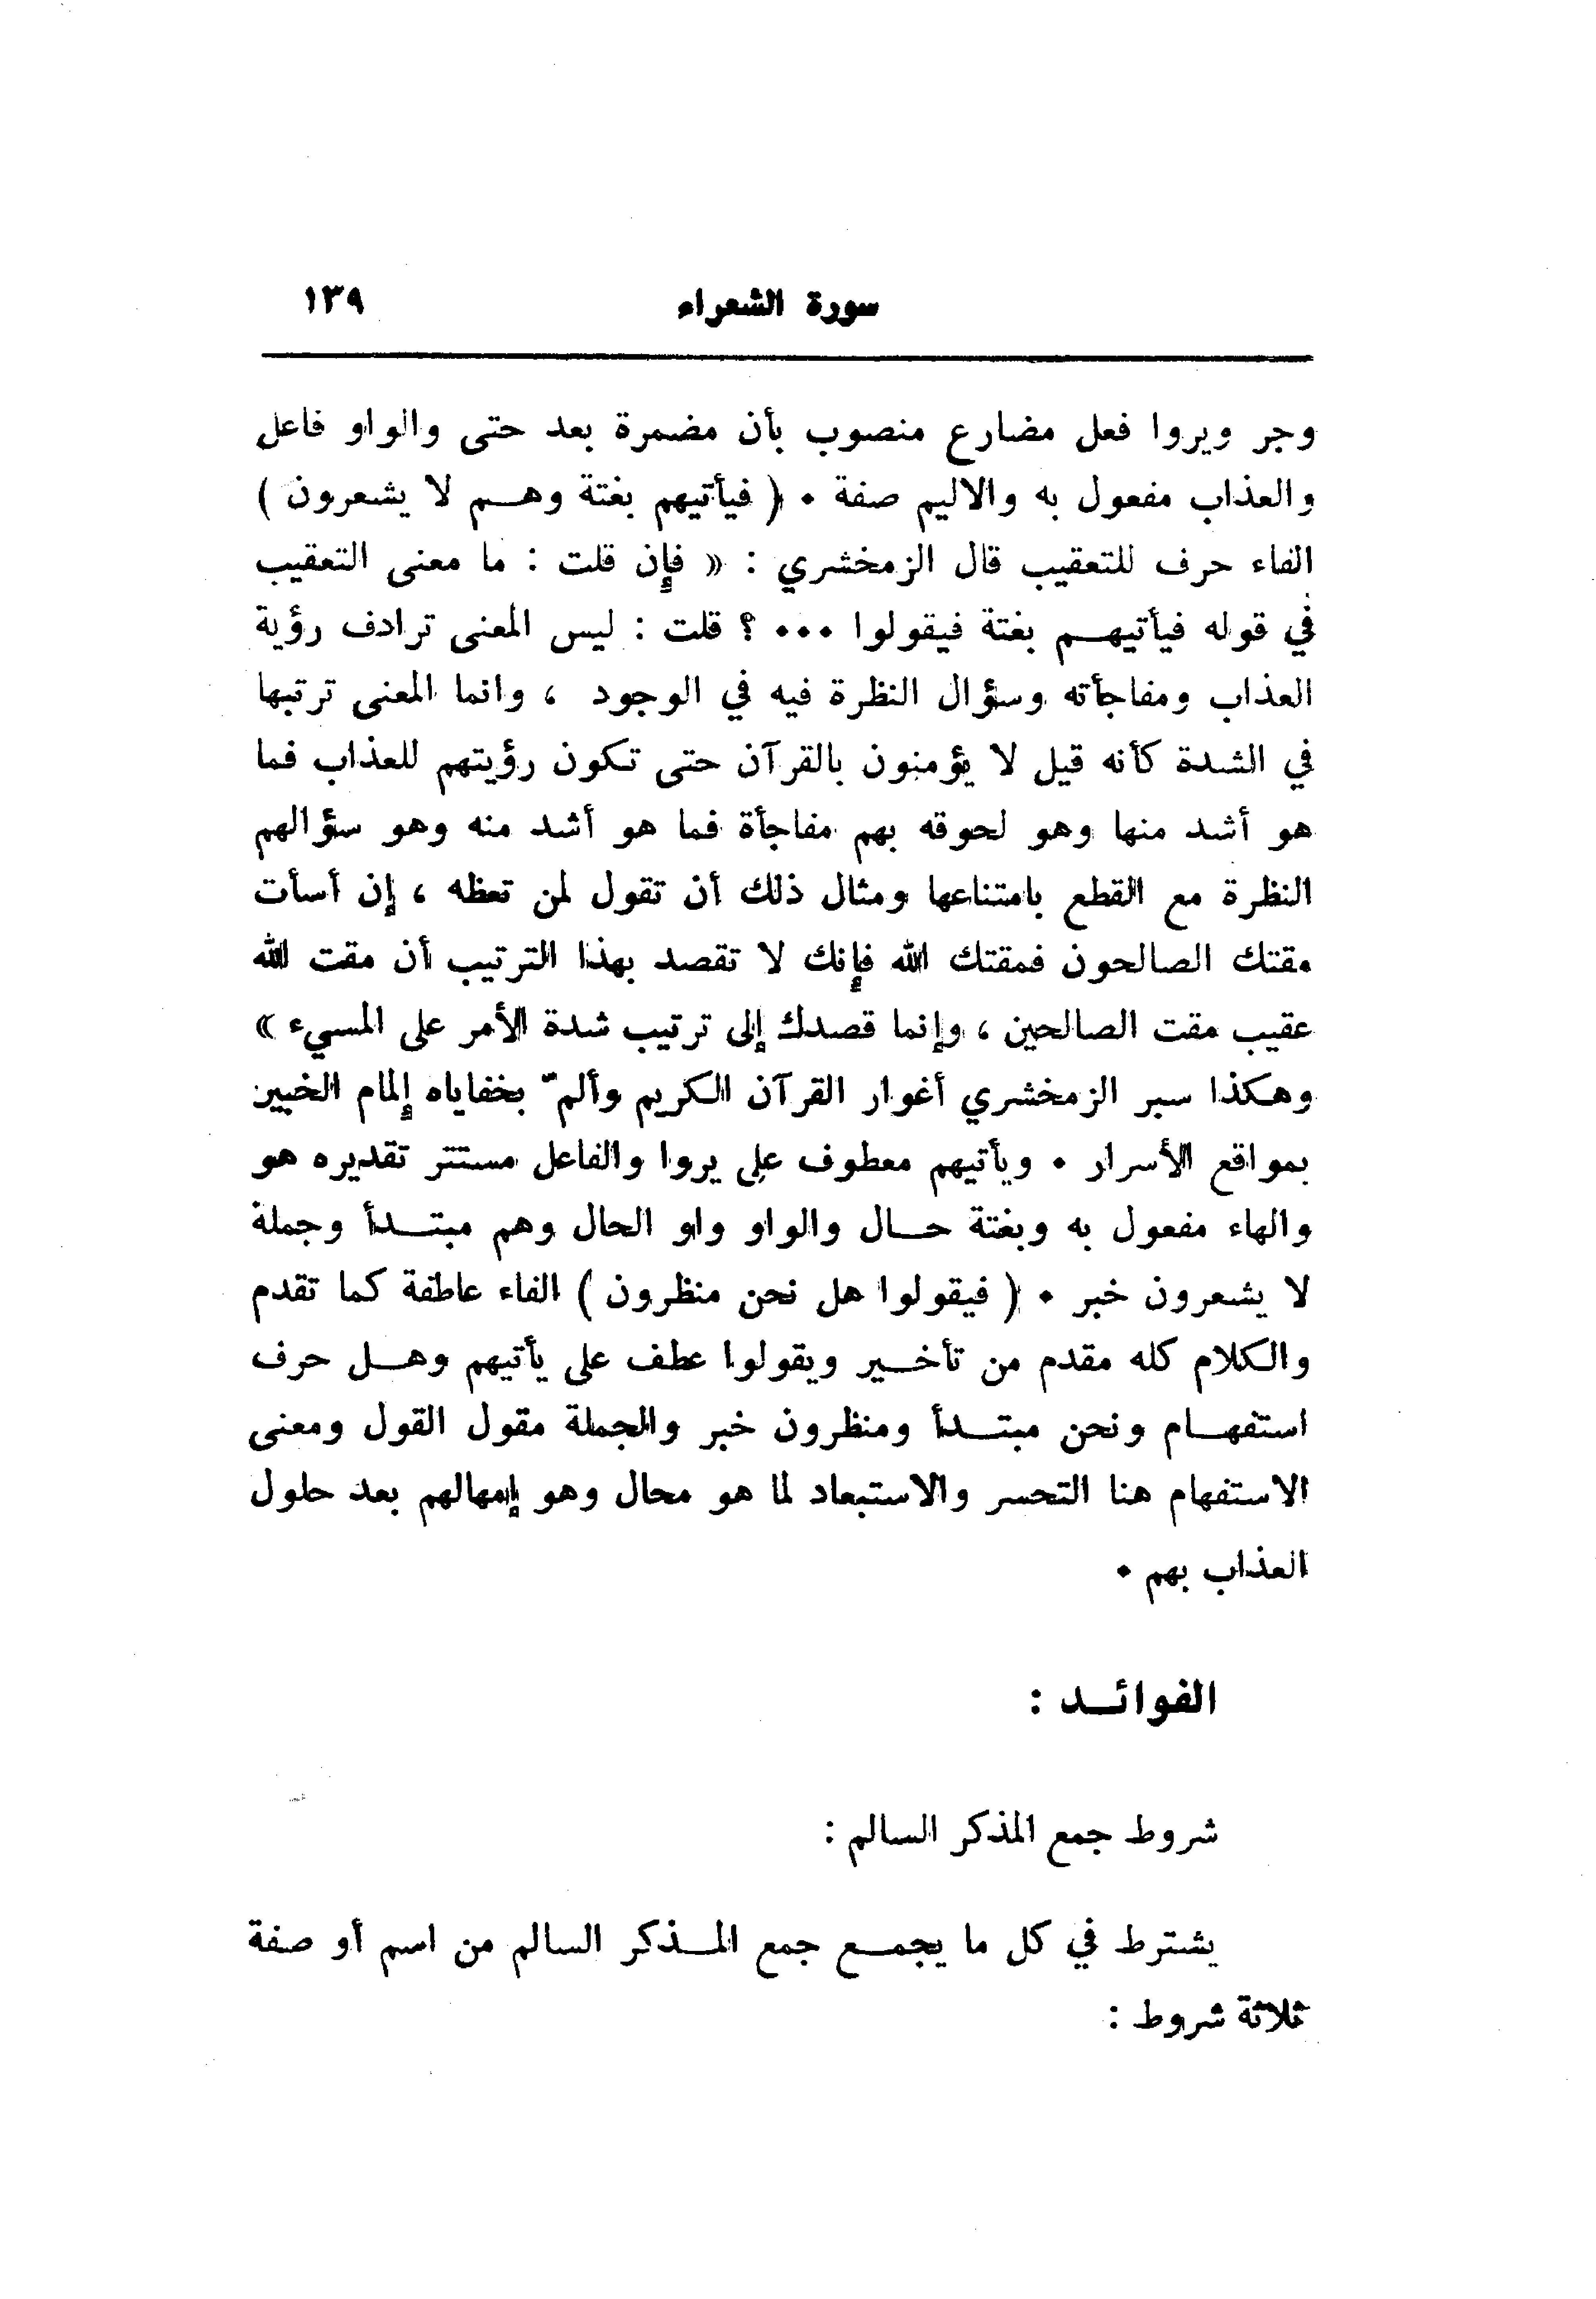 سورة الشعراء ١٣٩
وجر ويروا فعل مضارع منصوب بأن مضمرة بعد حتى والواو فاعل
والعذاب مفعول به والاليم صفة . ( فيأتيهم بغتة وهم لا يشعرون )
الفاء حرف للتعقيب قال الزمخشري : « فإن قلت : ما معنى التعقيب
في قوله فيأتيهم بغتة فيقولوا ... ؟ قلت : ليس المعنى ترادف رؤية
العذاب ومفاجأته وسؤال النظرة فيه في الوجود ، وانما المعنى ترتبها
في الشدة كأنه قيل لا يؤمنون بالقرآن حتى تكون رؤيتهم للعذاب فما
هو أشد منها وهو لحوقه بهم مفاجأة فما هو أشد منه وهو سؤالهم
النظرة مع القطع بامتناعها ومثال ذلك أن تقول لمن تعظه ، إن أسأت
مقتك الصالحون فمقتك الله فإنك لا تقصد بهذا الترتيب أن مقت الله
عقيب مقت الصالحين ، وإنما قصدك إلى ترتيب شدة الأمر على المسيء »
وهكذا سبر الزمخشري أغوار القرآن الكريم وألمّ بخفاياه إلمام الخبير
بمواقع الأسرار . ويأتيهم معطوف على يروا والفاعل مستتر تقديره هو
والهاء مفعول به وبغتة حال والواو واو الحال وهم مبتدأ وجملة
لا يشعرون خبر . ( فيقولوا هل نحن منظرون ) الفاء عاطفة كما تقدم
والكلام كله مقدم من تأخير ويقولوا عطف على يأتيهم وهل حرف
استفهام ونحن مبتدأ ومنظرون خبر والجملة مقول القول ومعنى
الاستفهام هنا التحسر والاستبعاد لما هو محال وهو إمهالهم بعد حلول
العذاب بهم .
الفوائد :
شروط جمع المذكر السالم :
يشترط في كل ما يجمع جمع المذكر السالم من اسم أو صفة
ثلاثة شروط :